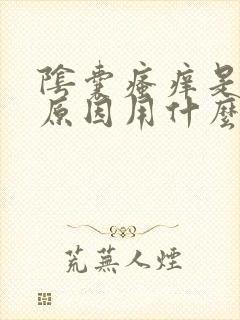 陰囊瘙癢是
原因用什麼
荒蕪人煙